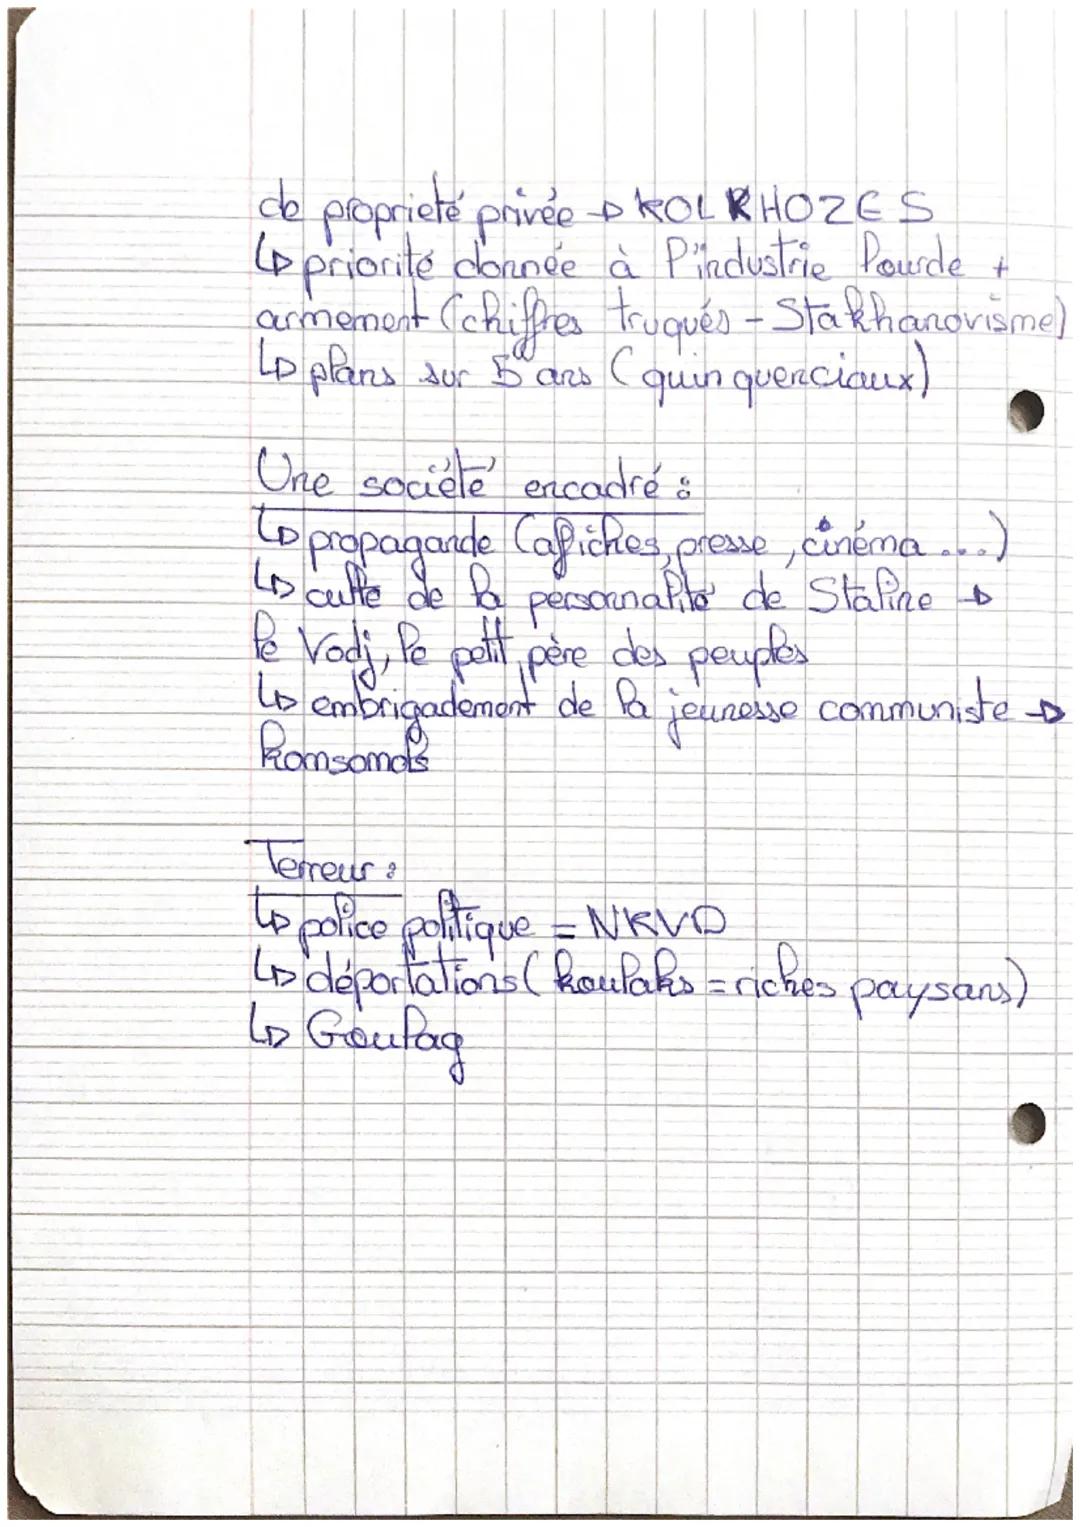 de proprieté privée → KOLKHOZES
↳ priorité donnée à l'industrie lourde +
armement (chiffres truqués - Stakhanovisme)
↳ plans sur 5 ans (quinquenciaux)
Une société encadré :
↳ propagande (affiches, presse, cinéma ...)
↳ culte de la personnalité de Staline →
le Vodj, le petit père des peuples
↳ embrigadement de la jeunesse communiste →
komsomols
Terreur :
↳ police politique = NKVD
↳ déportations (koulaks = riches paysans)
↳ Goulag